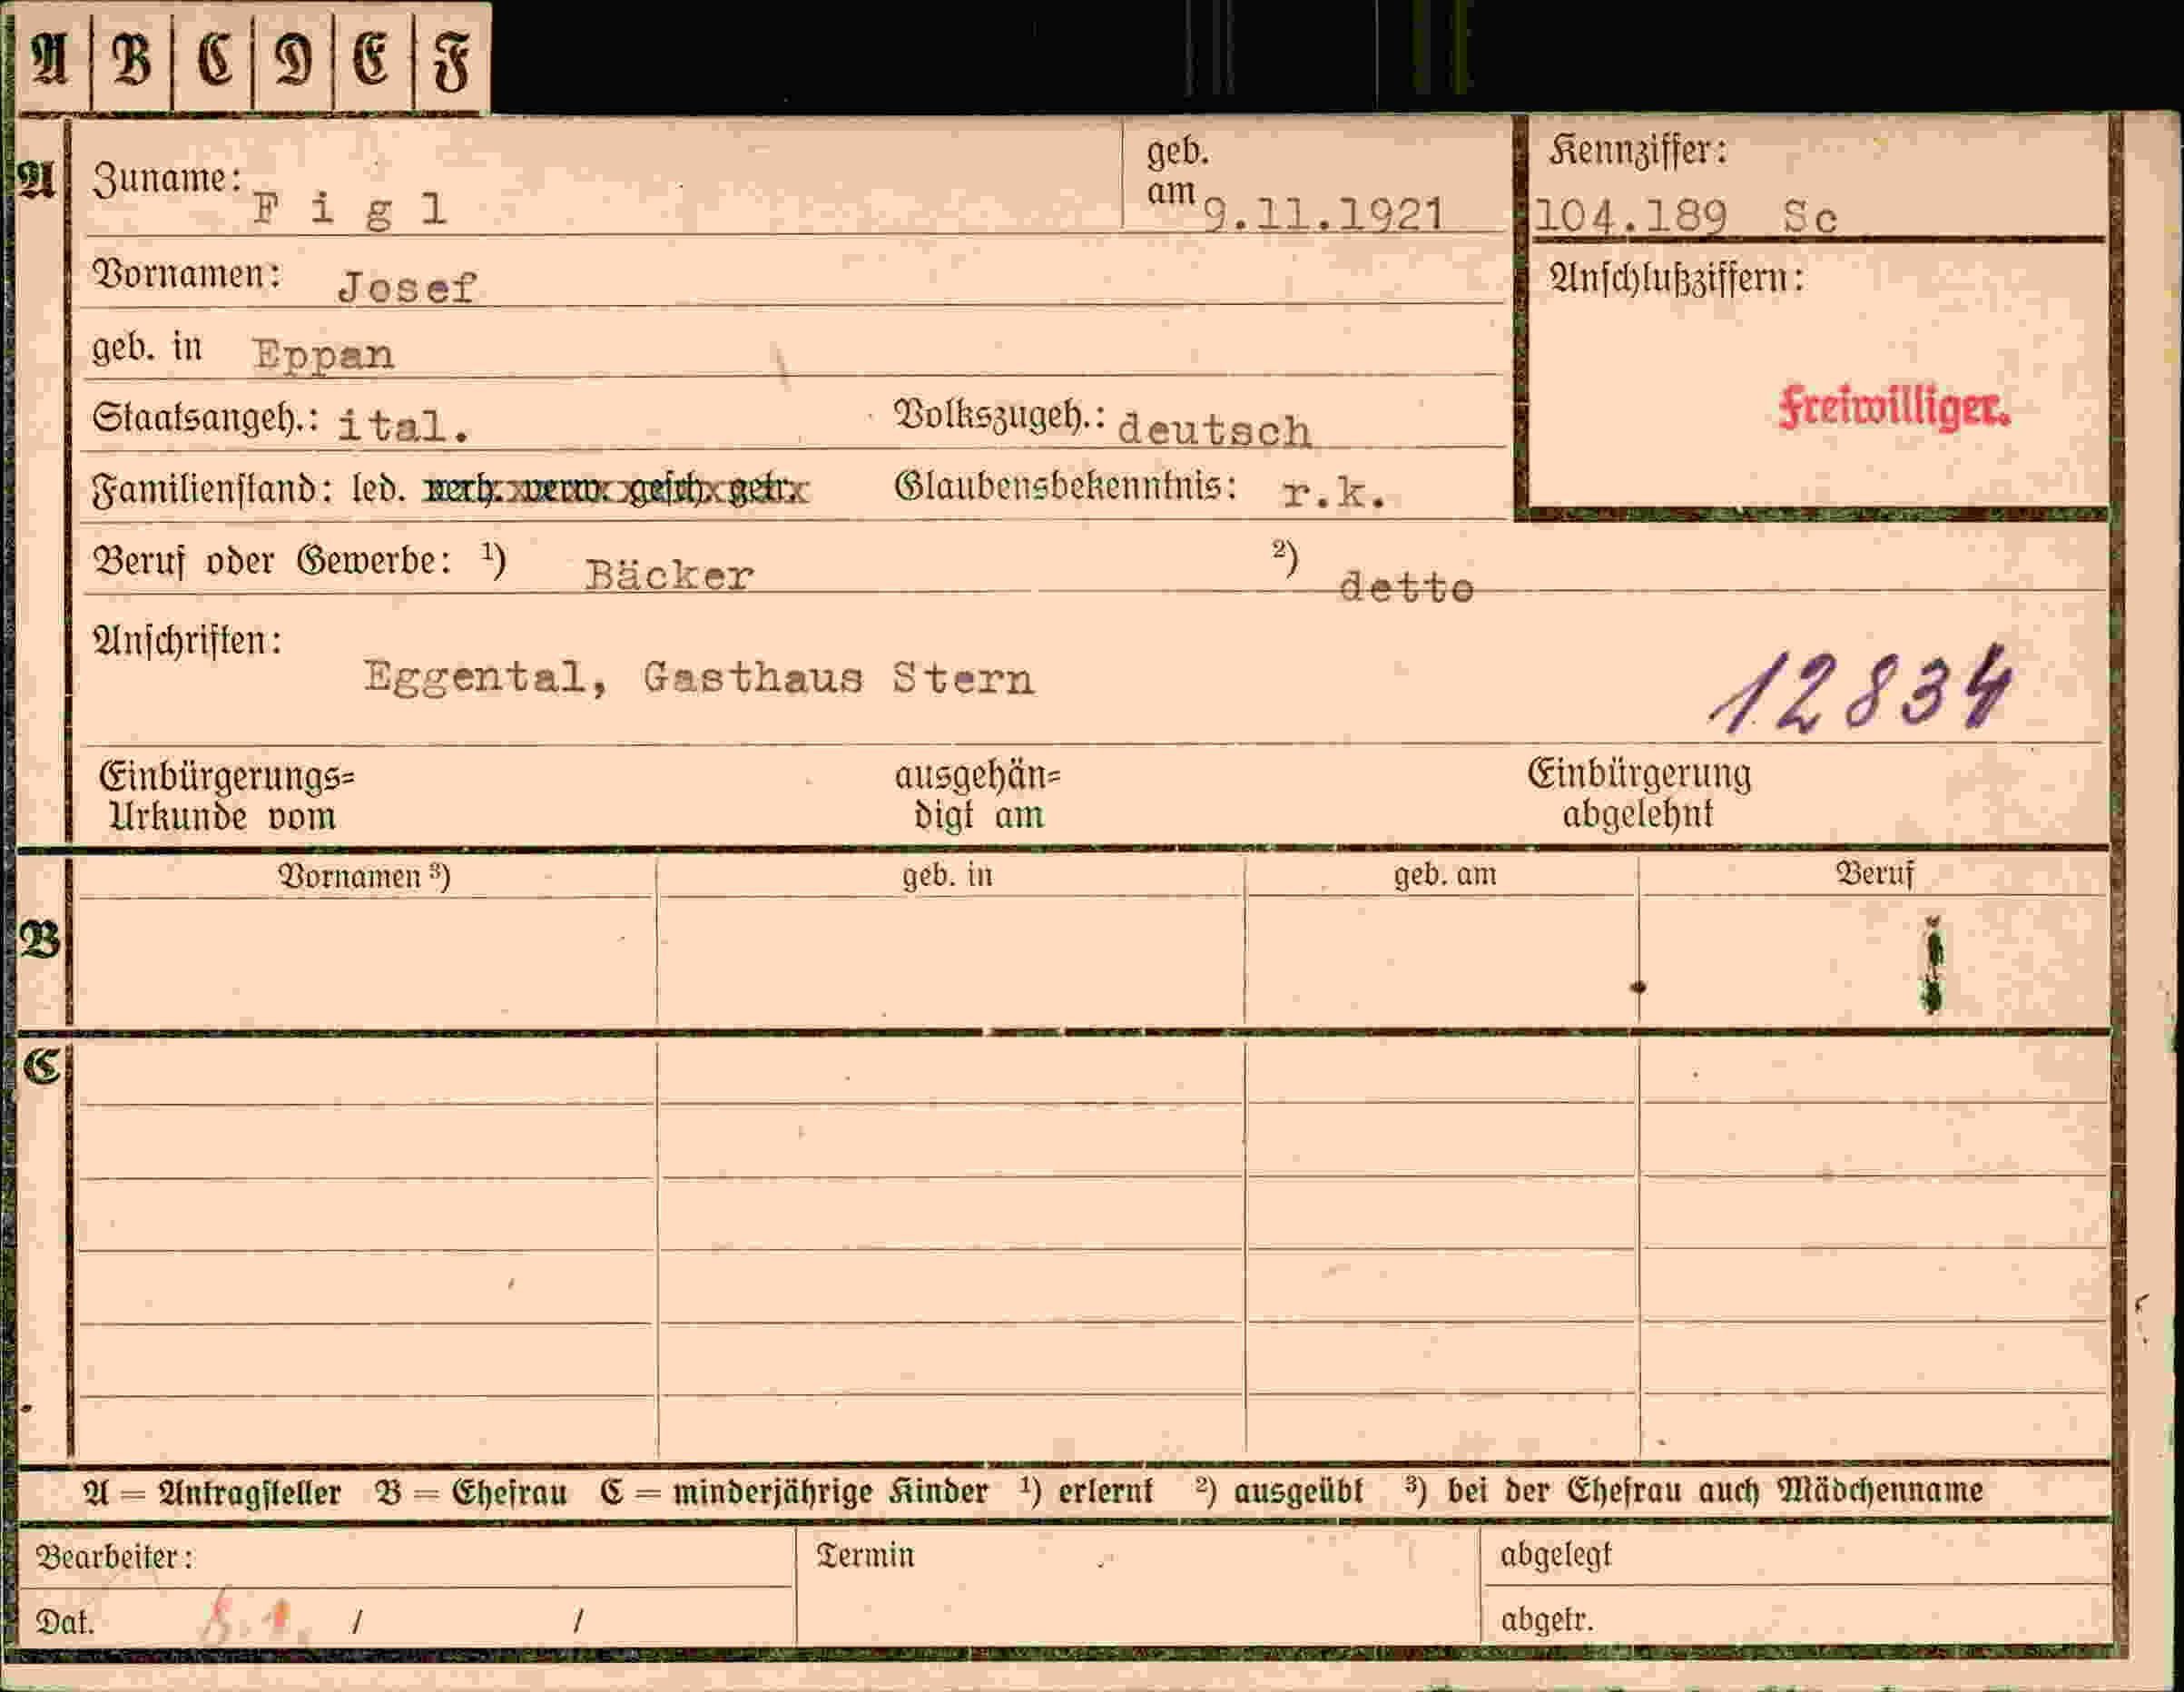 A B C D E F
A
Zuname: Figl
geb. am 9.11.1921
Kennziffer:
104.189 Sc
Vornamen: Josef
Anschlußziffern:
geb. in Eppan
Freiwilliger.
Staatsangeh.: ital. Volkszugeh.: deutsch
Familienstand: led. verh. verw. gesch. getr. Glaubensbekenntnis: r.k.
Beruf oder Gewerbe: ¹) Bäcker ²) detto
Anschriften:
Eggental, Gasthaus Stern
12834
Einbürgerungs= ausgehän= Einbürgerung
Urkunde vom digt am abgelehnt
Vornamen ³) geb. in geb. am Beruf
B
C
A = Antragsteller B = Ehefrau C = minderjährige Kinder ¹) erlernt ²) ausgeübt ³) bei der Ehefrau auch Mädchenname
Bearbeiter: Termin abgelegt
Dat. / / abgetr.